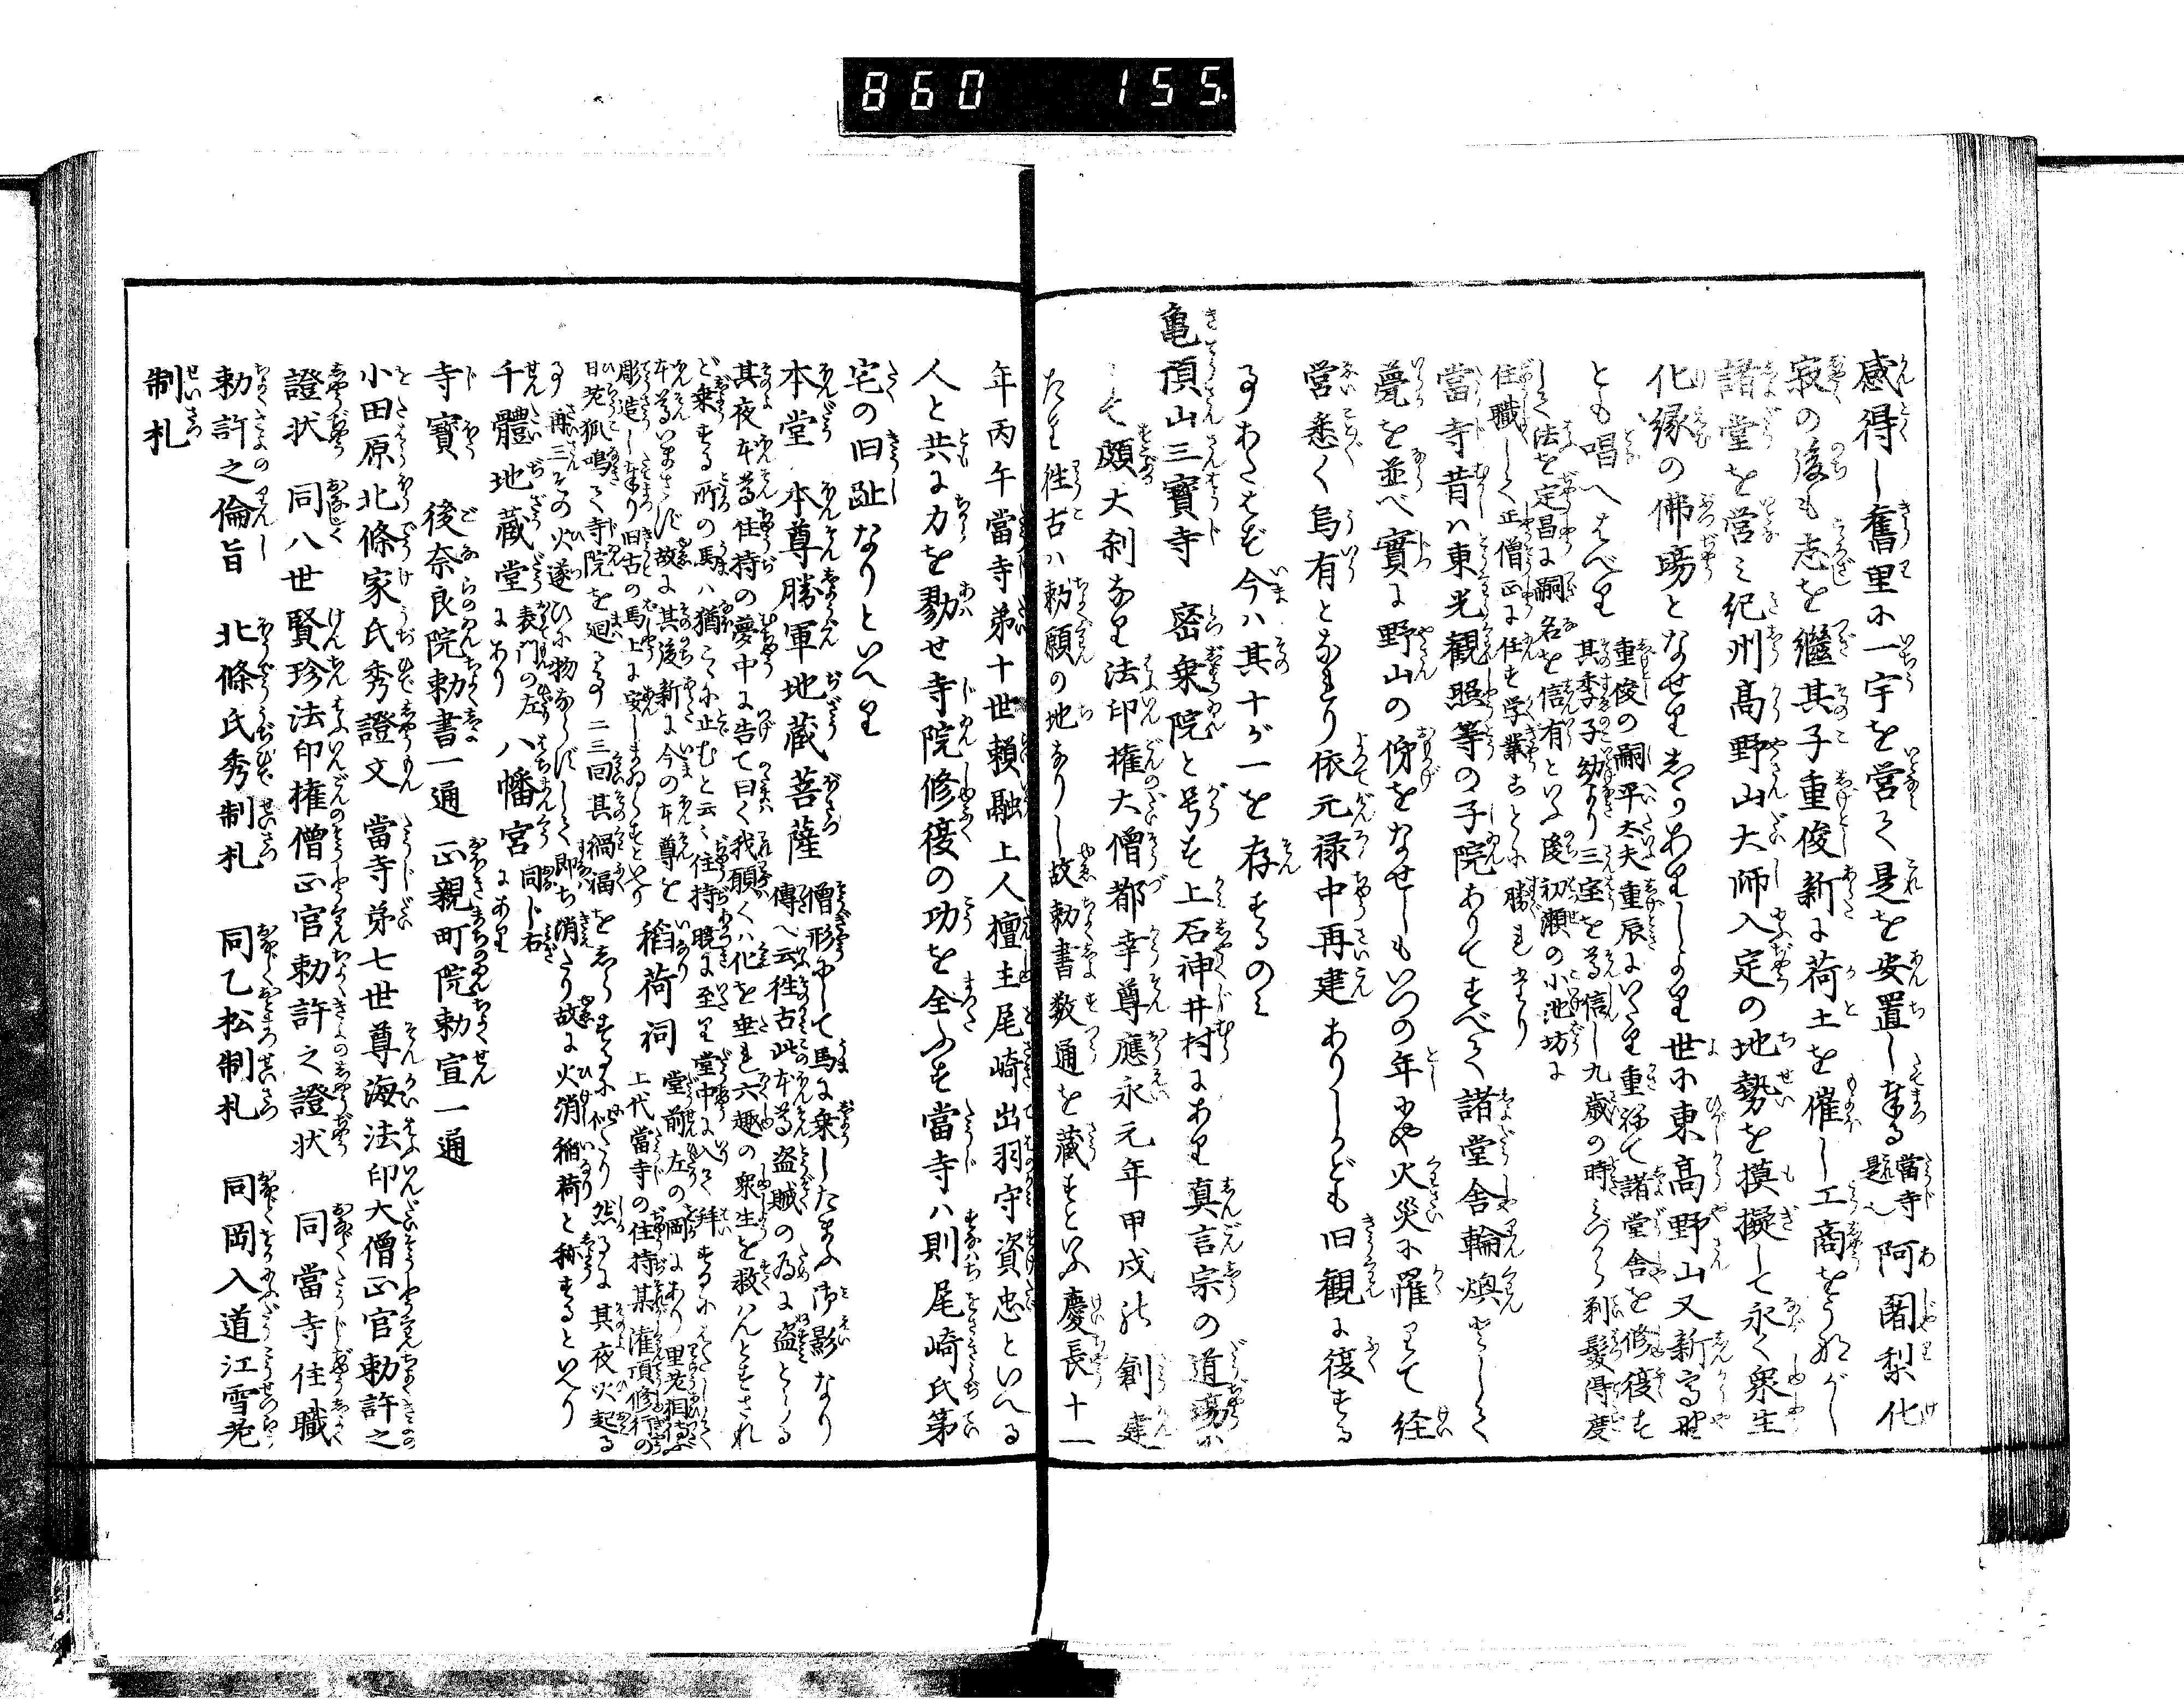 860 155
感得し舊里に一宇を営みて是を安置し奉る 當寺是也 阿闍梨化
寂の後も志を継其子重俊新に荷土を催し工商をうながし
諸堂を営み紀州高野山大師入定の地勢を摸擬して永く衆生
化縁の佛場となせり
世に東高野山又新高野
とも唱へはべり
重俊の嗣平太夫重辰
諸堂舎を修復す
其季子幼より三宝を
信し九歳の時みづから剃髪得度
して法を定昌に嗣名を信有といふ後初瀬の小池坊に
住職して正僧正に任ず学業ことに勝れたり
當寺昔ハ東光観照等の子院ありてすべて諸堂舎輪煥として
甍を並べ實に野山の俤をなせしもいつの年にや火災に罹りて経
営悉く烏有となれり依元禄中再建ありしかども旧観に復する
事あたはず今ハ其十が一を存するのみ
亀頂山三寳寺 密乗院と号す上石神井村にあり真言宗の道場に
して頗大刹なり法印権大僧都幸尊應永元年甲戌創建
たり往古ハ勅願の地なりし故勅書数通を蔵すといふ慶長十一
年丙午當寺第十世頼融上人檀主尾崎出羽守資忠といへる
人と共に力を勠せ寺院修復の功を全ふす當寺ハ則尾崎氏第
宅の旧趾なりといへり
本堂 本尊勝軍地蔵菩薩 僧形にして馬に乗したまふ御影なり
傳へ云往古此本尊盗賊の為に盗とらる
其夜本尊住持の夢中に告て曰く我願くハ化を垂れ六趣の衆生を救ハんとすされ
ど乗する所の馬ハ猶こゝに止むと云々住持暁に至り堂中に入て拝するに
本尊いまさず故に其後新に今の本尊を
彫造し奉り旧古の馬上に安しまゐらすといへり
稲荷祠 堂前左の岡にあり
上代當寺の住持某灌頂修行の
日老狐鳴て寺院を廻る事二三回其禍福をしらするに似たり然るに其夜火起る
事再三その火遂に物ならずして即ち消たり故に火消稲荷と称するといへり
千體地蔵堂 表門の左にあり 八幡宮 同し右にあり
寺寳 後奈良院勅書一通 正親町院勅宣一通
小田原北條家氏秀證文 當寺第七世尊海法印大僧正官勅許之
證状 同八世賢珍法印権僧正官勅許之證状 同當寺住職
勅許之倫旨 北條氏秀制札 同乙松制札 同岡入道江雪老
制札